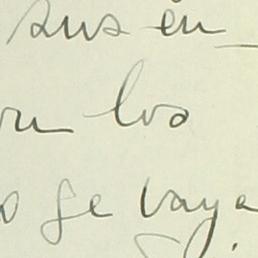 sus en-
on los
o se vaya